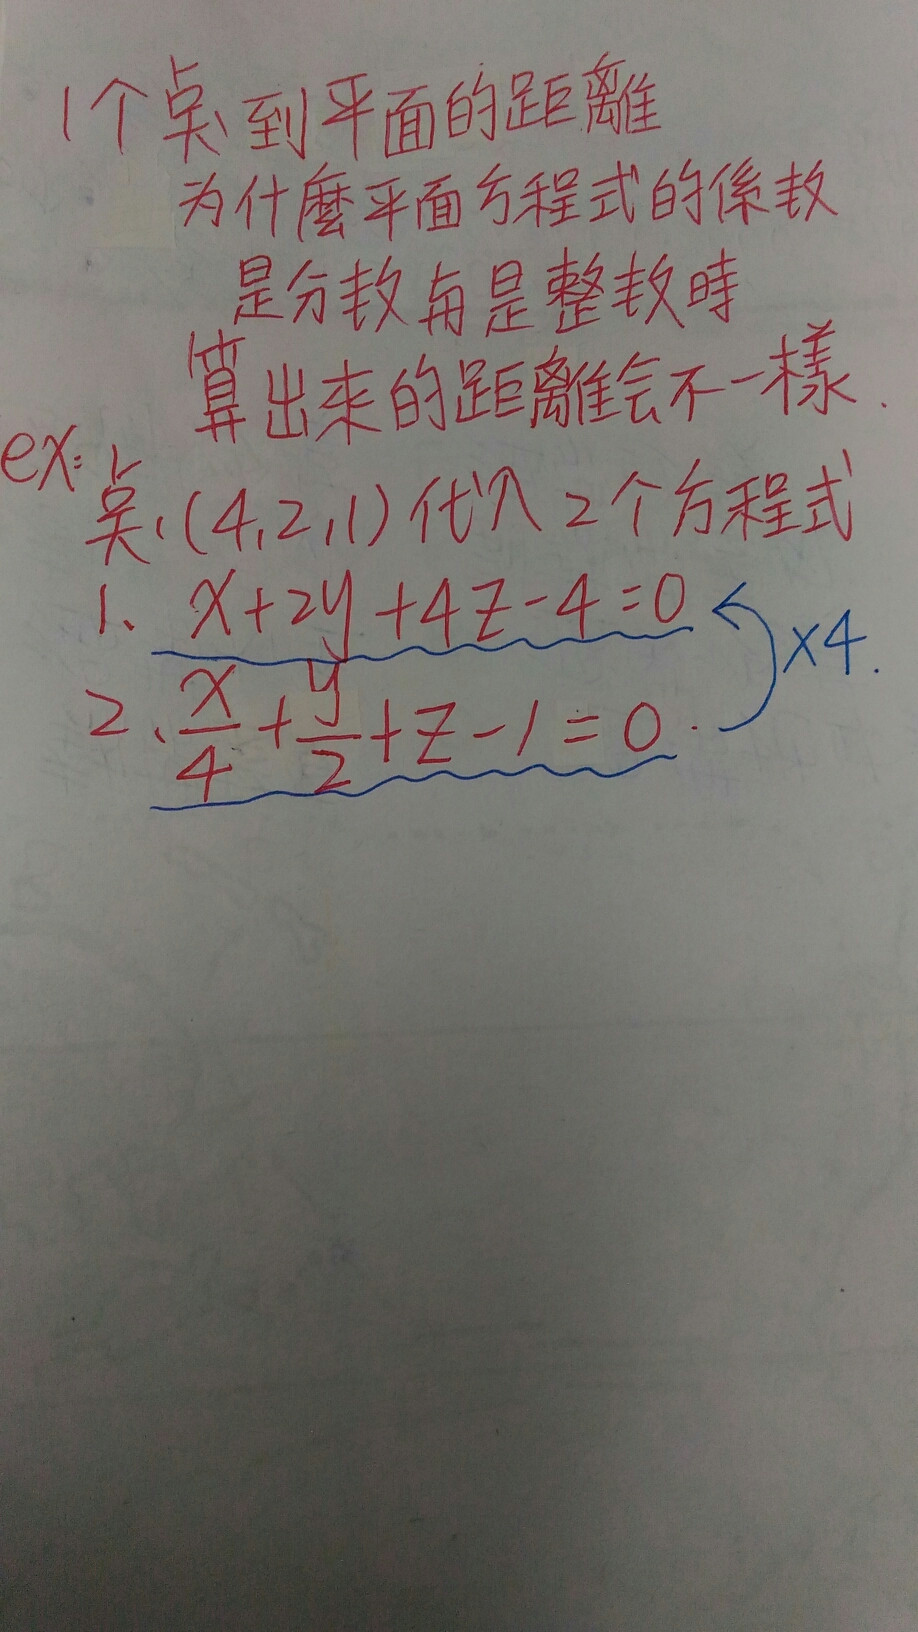 1个点到平面的距離
为什麼平面方程式的係数
是分数与是整数時
算出來的距離会不一樣.
ex:
点(4,2,1)代入2个方程式
1. x+2y+4z-4=0
×4.
2. x/4+y/2+z-1=0.